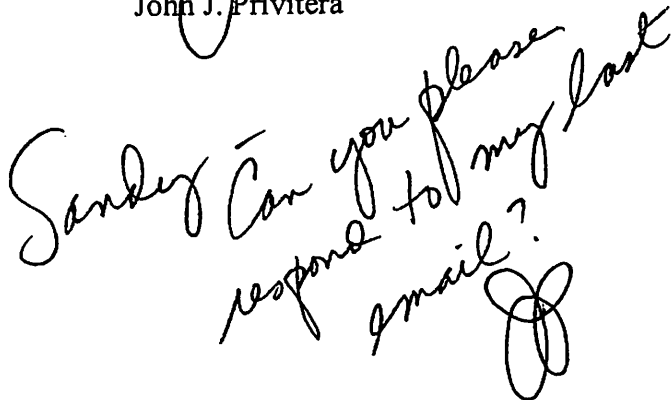 John J. Privitera
Sandy – Can you please
respond to my last
email?